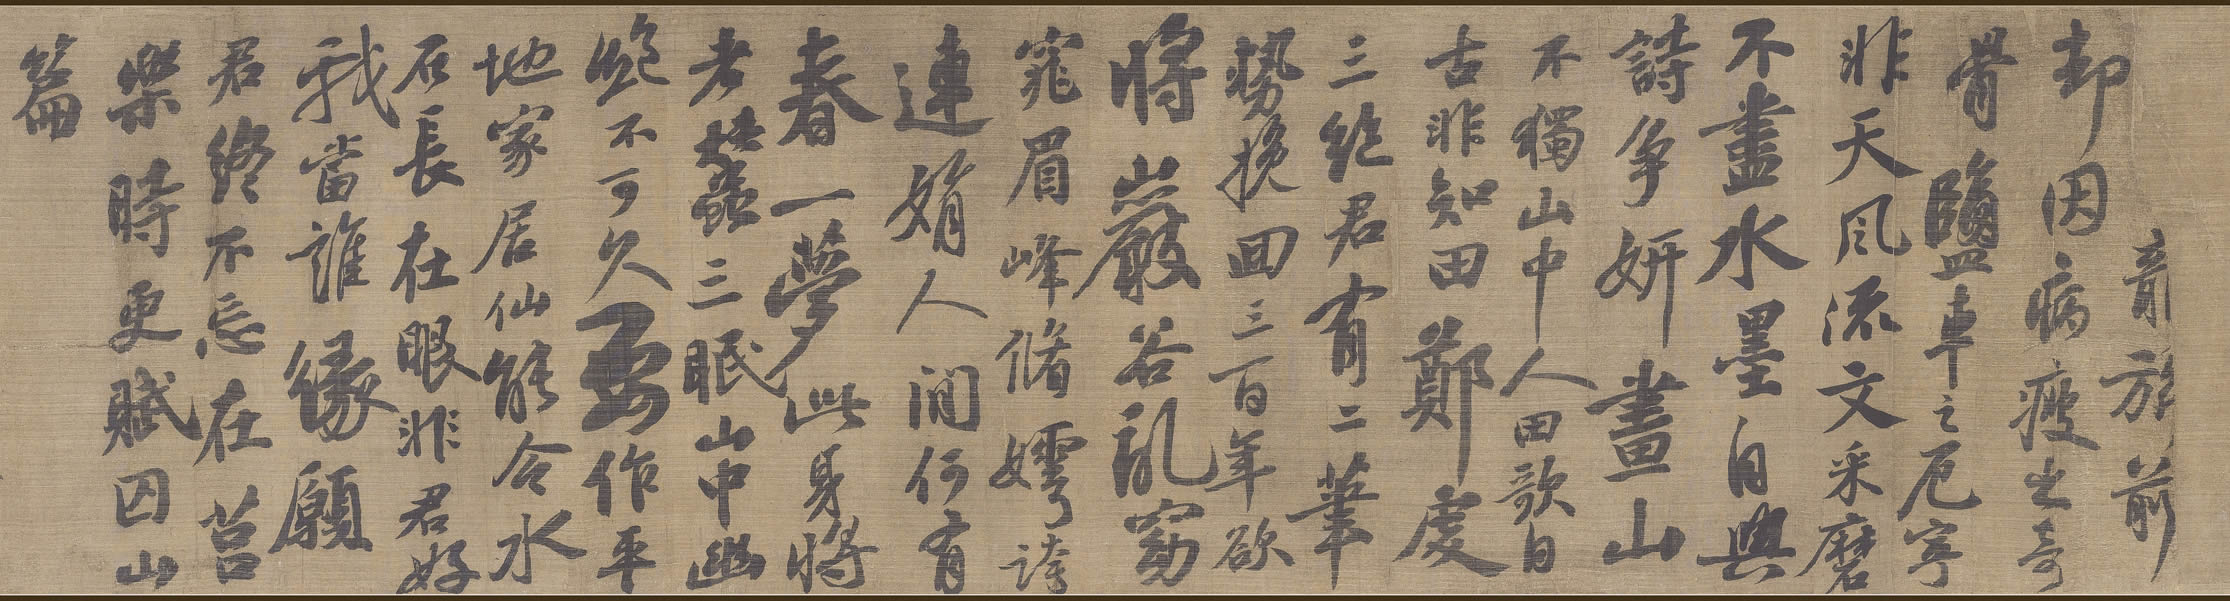 龍旂前
却因病瘦出奇
骨鹽車之厄寧
非天風流文采磨
不盡水墨自與
詩爭妍畫山
不獨山中人田歌自
古非知田鄭虔
三絕君有二筆
勢挽回三百年欲
將巖谷亂窈
窕眉峰脩嫮誇
連娟人間何有
春一夢此身將
老蠶三眠山中幽
絕不可久要作平
地家居仙能令水
石長在眼非君好
我當誰緣願
君終不忘在莒
樂時更賦囚山
篇